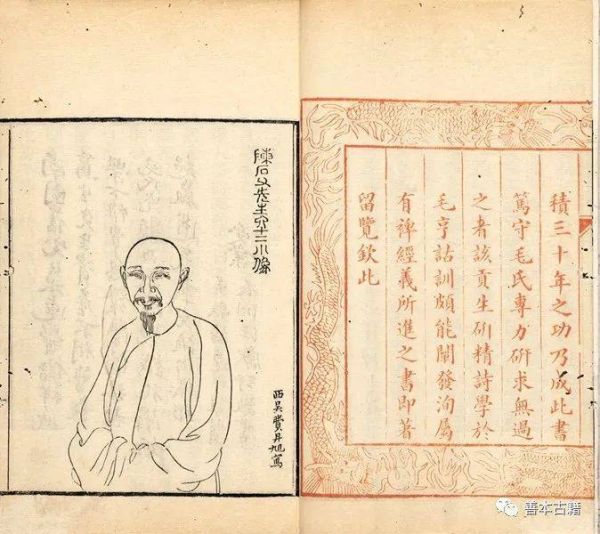 積三十年之功乃成此書
篤守毛氏專力硏求無過
之者該貢生硏精詩學於
毛亨詁訓頗能闡發洵屬
有裨經義所進之書即著
留覽欽此
陳石父先生六十二小像
西吳費丹旭寫
善本古籍